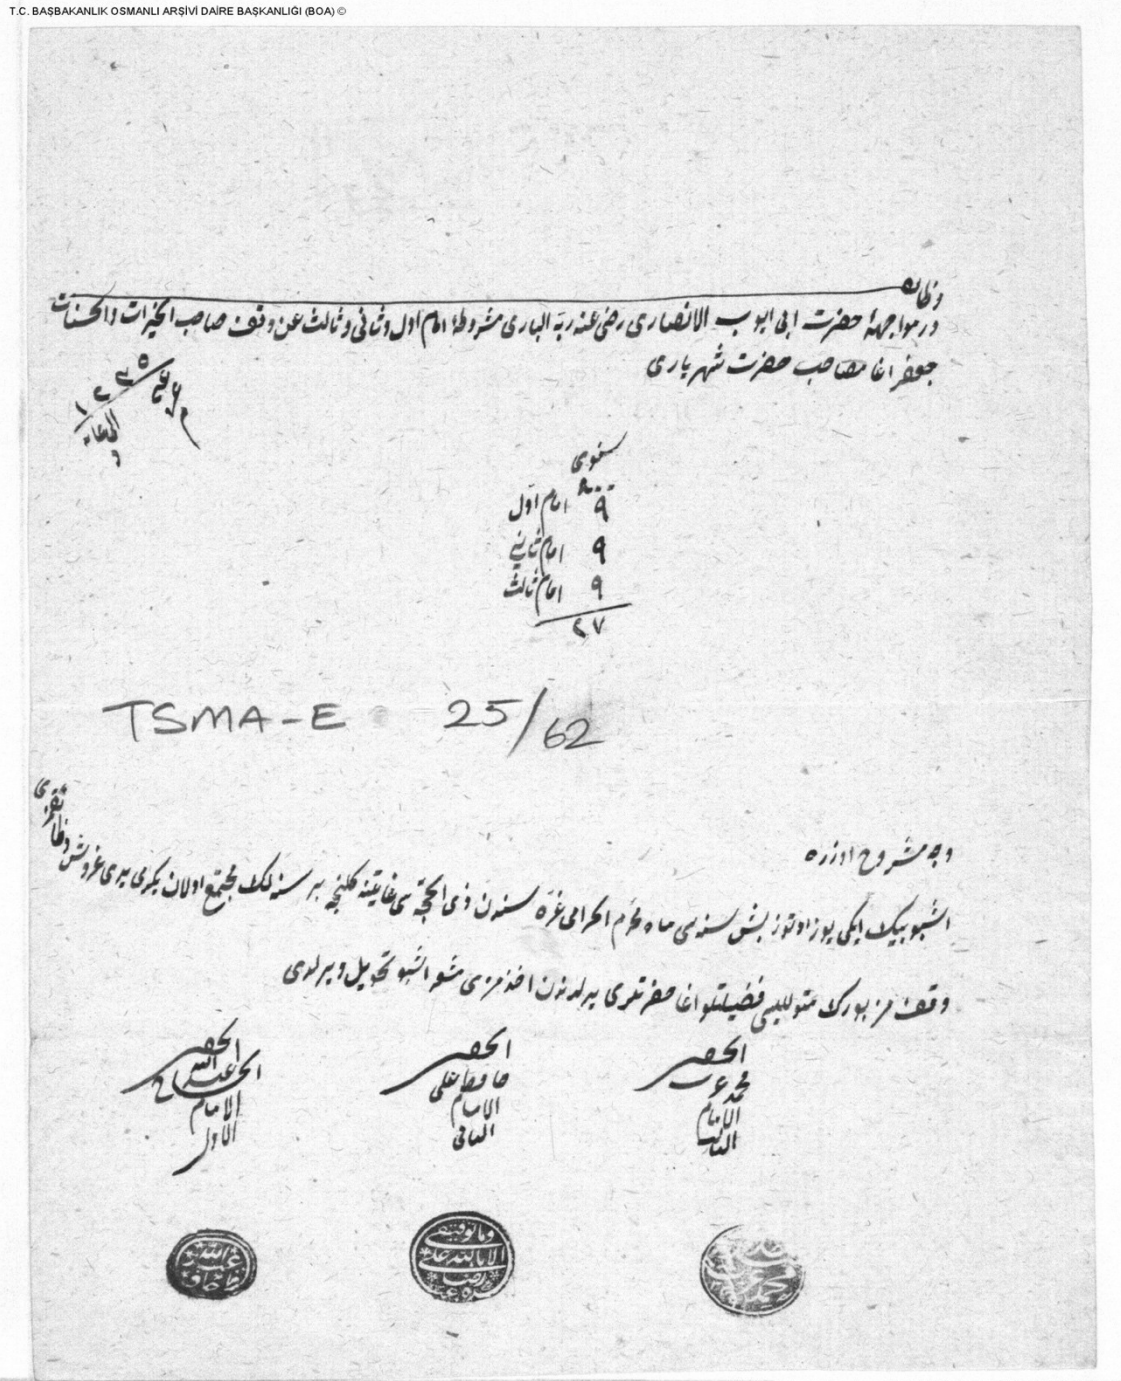 T.C. BAŞBAKANLIK OSMANLI ARŞİVİ DAİRE BAŞKANLIĞI (BOA) ©
وظائف
در مواجههٔ حضرت ابی ایوب الانصاری رضی عنه ربه الباری مشروطهٔ امام اول وثانی وثالث عن وقف صاحب الخیرات والحسنات
جعفر اغا مصاحب حضرت شهریاری
١٢٣٥
سنوی
٩ امام اول
٩ امام ثانی
٩ امام ثالث
٢٧
TSMA-E 25/62
وجه مشروح اوزره
اشبو بیك ایكی یوز اوتوز بش سنه سی ماه محرم الحرامی غره سندن ذی الحجه سی غایتنه كلنجه بر سنه لك مجتمع اولان یكرمی یدی غروش وظائفمزی
وقف مزبورك متولیسی فضیلتلو اغا حضرتلری یدلرندن اخذمزی مشعر اشبو تحویل ویرلدی
الحقیر
محمد عرب
الامام
الثالث
الحقیر
حافظ علی
الامام
الثانی
الحقیر
الحاج عبد الله
الامام
الاول
وما توفیقی
الا بالله
عبد الله
محمد